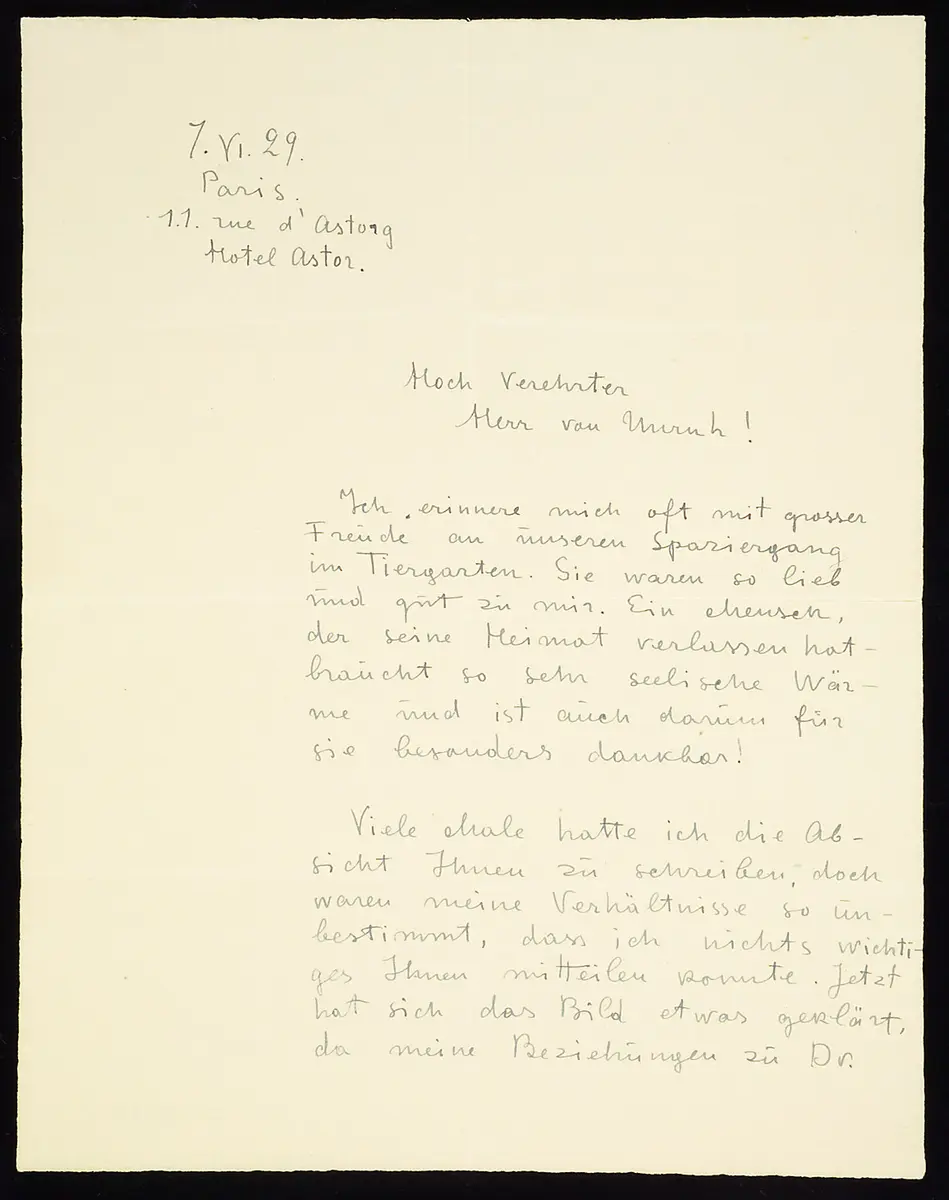 7. VI. 29.
Paris.
11. rue d'Astorg
Hotel Astor.
Hoch Verehrter
Herr von Unruh!
Ich erinnere mich oft mit grosser
Freude an unseren Spaziergang
im Tiergarten. Sie waren so lieb
und gut zu mir. Ein Mensch,
der seine Heimat verlassen hat –
braucht so sehr seelische Wär-
me und ist auch darum für
sie besonders dankbar!
Viele Male hatte ich die Ab-
sicht Ihnen zu schreiben, doch
waren meine Verhältnisse so un-
bestimmt, dass ich nichts wichti-
ges Ihnen mitteilen konnte. Jetzt
hat sich das Bild etwas geklärt,
da meine Beziehungen zu Dr.